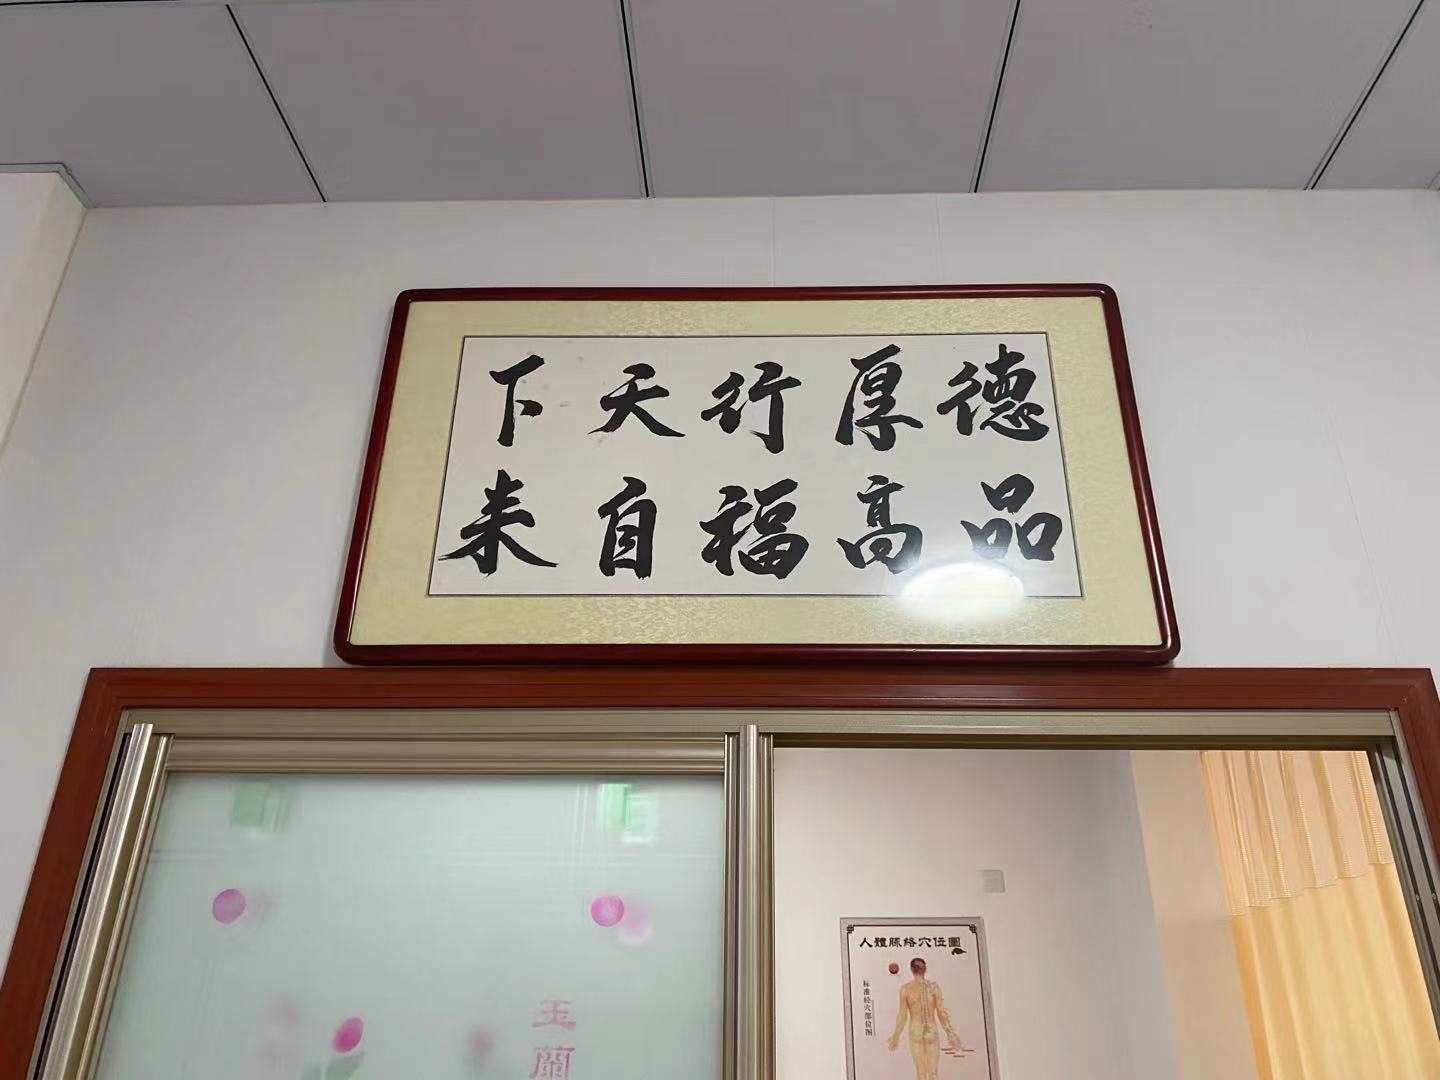 德厚行天下
品高福自来
人體脈络穴位圖
标准经穴部位图
玉
蘭